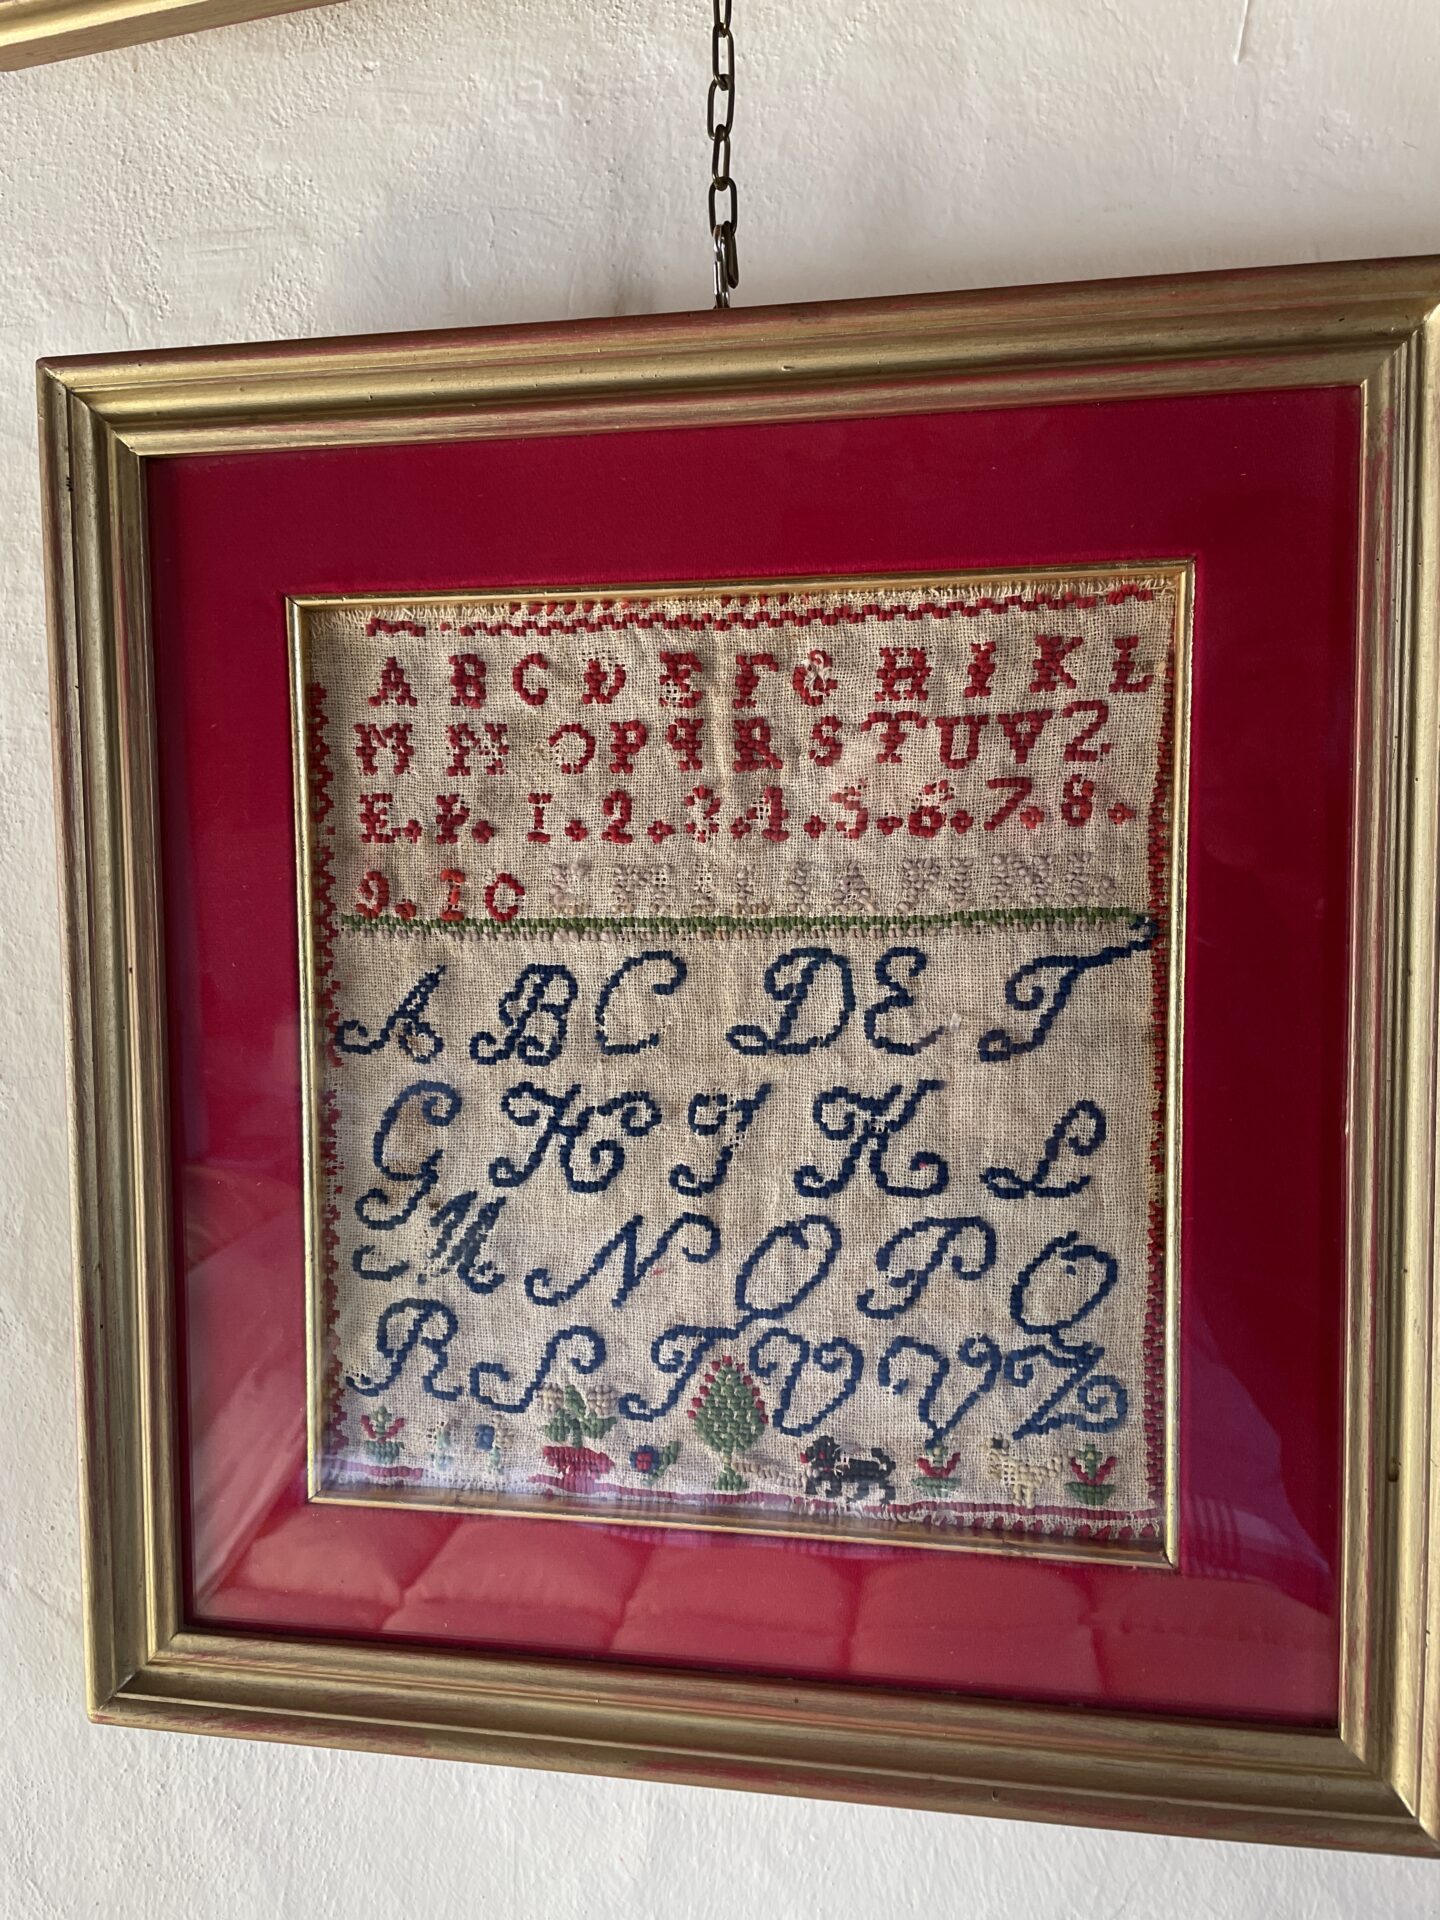 A B C D E F G H I K L
M N O P Q R S T U V Z
E. 1. 2. 3. 4. 5. 6. 7. 8.
9. 10
A B C D E F
G H I K L
M N O P Q
R S T U V Z